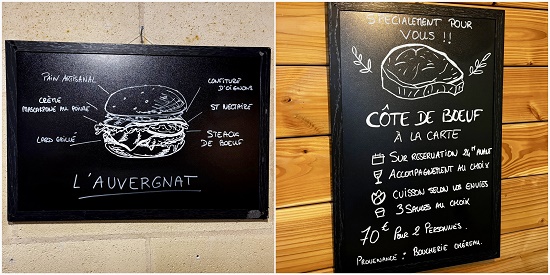 PAIN ARTISANAL
CRÈME
MASCARPONE AU POIVRE
LARD GRILLÉ
CONFITURE
D'OIGNONS
ST NECTAIRE
STEACK
DE BOEUF
L'AUVERGNAT
SPÉCIALEMENT POUR
VOUS !!
CÔTE DE BOEUF
À LA CARTE
SUR RESERVATION 24H AVANT
ACCOMPAGNEMENT AU CHOIX
CUISSON SELON VOS ENVIES
3 SAUCES AU CHOIX
70€ POUR 2 PERSONNES.
PROVENANCE : BOUCHERIE CHÉREAU.